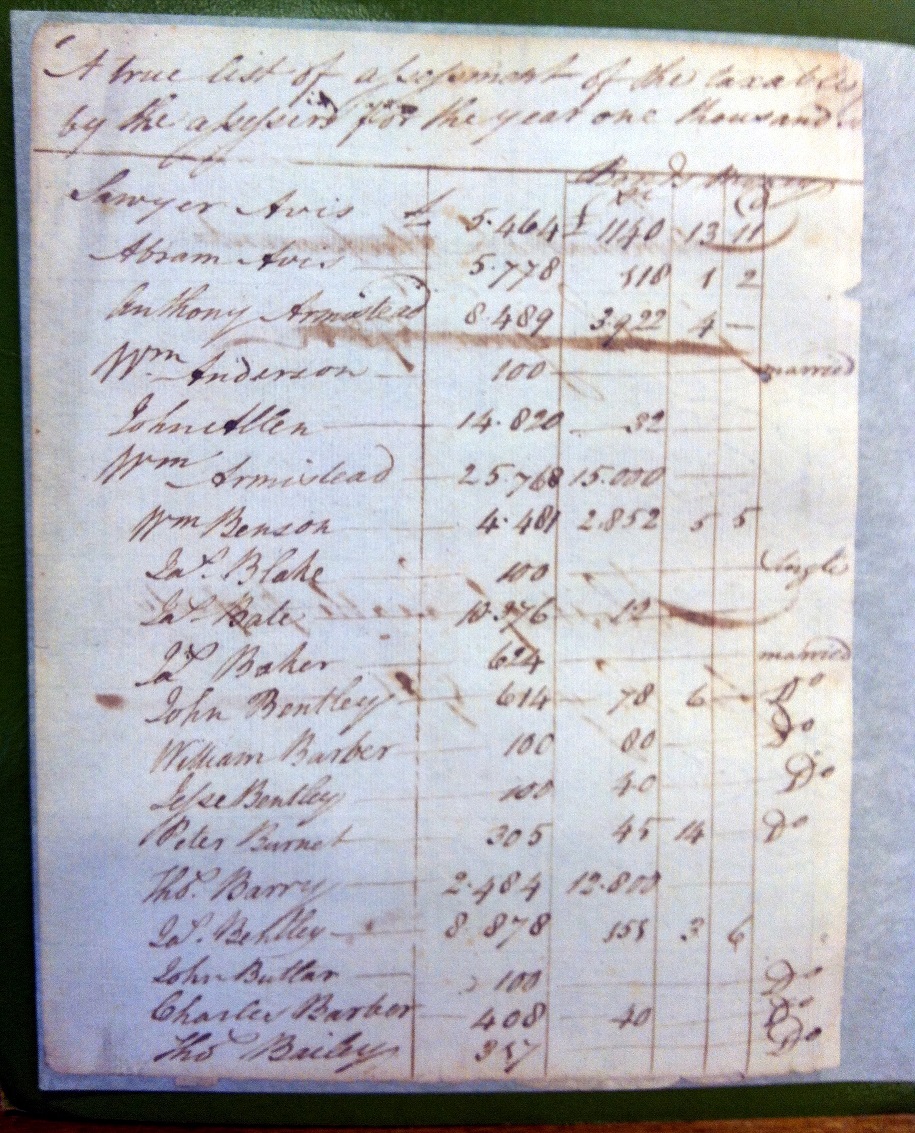 A true list of assessment of the taxable
by the assessers for the year one thousand
Bonds Money
Sawyer Avis £ 5.464 £ 1140 13 11
Abram Avis 5.778 118 1 2
Anthony Armistead 8.489 3922 4 —
Wm Anderson 100 married
John Allen 14.820 32
Wm Armistead 25.768 15.000
Wm Benson 4.481 2.852 5 5
Jas. Blake 100 Single
Jas. Bate 10.376 12
Jas. Baker 624 married
John Bentley 614 78 6 Do
William Barber 100 80 Do
Jesse Bentley 100 40 Do
Peter Burnet 305 45 14 Do
Thos. Barry 2.484 12.800
Jas. Bentley 8.878 155 3 6
John Butlar 100 Do
Charles Barber 408 40 Do
Thos Bailey 357 Do